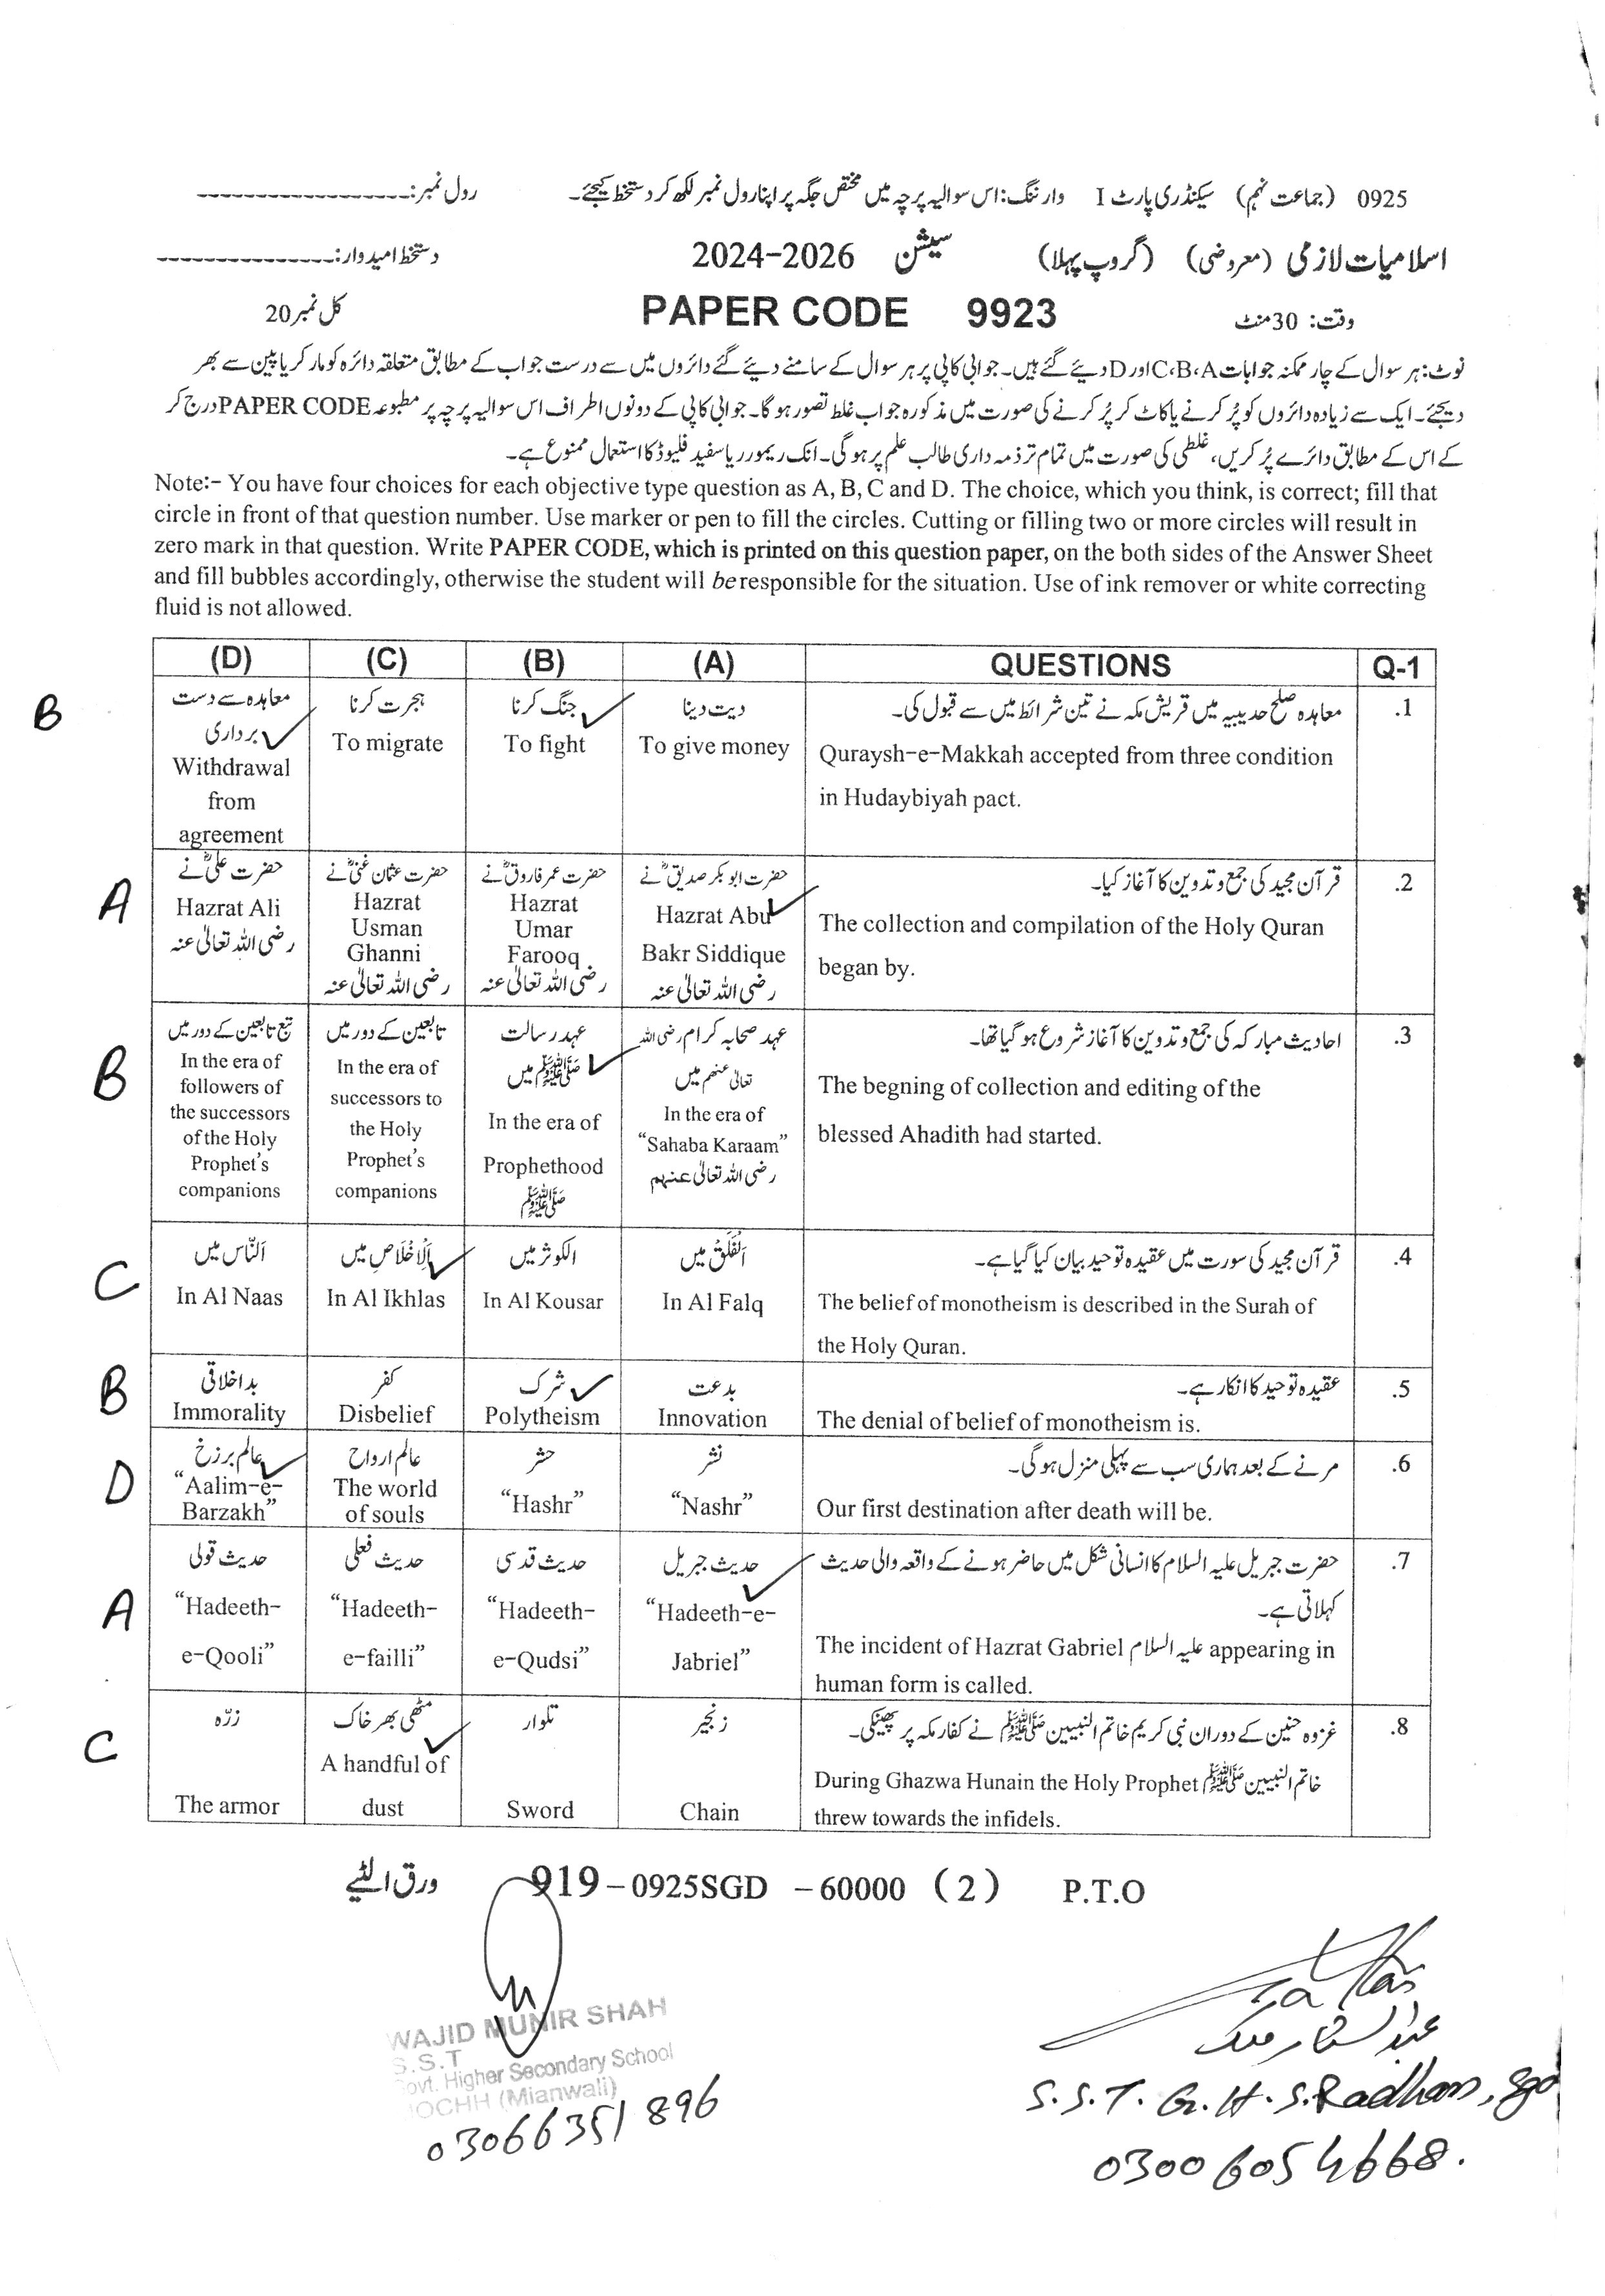 0925 (جماعت نہم) سیکنڈری پارٹ I وارننگ: اس سوالیہ پرچہ میں مختص جگہ پر اپنا رول نمبر لکھ کر دستخط کیجئے۔ رول نمبر:
اسلامیات لازمی (معروضی) (گروپ پہلا) سیشن 2024-2026 دستخط امیدوار:
وقت: 30 منٹ PAPER CODE 9923 کل نمبر 20
نوٹ: ہر سوال کے چار ممکنہ جوابات C،B،A اور D دیئے گئے ہیں۔ جوابی کاپی پر ہر سوال کے سامنے دیئے گئے دائروں میں سے درست جواب کے مطابق متعلقہ دائرہ کو مارکر یا پین سے بھر
دیجئے۔ ایک سے زیادہ دائروں کو پُر کرنے یا کاٹ کر پُر کرنے کی صورت میں مذکورہ جواب غلط تصور ہو گا۔ جوابی کاپی کے دونوں اطراف اس سوالیہ پرچہ پر مطبوعہ PAPER CODE درج کر
کے اس کے مطابق دائرے پُر کریں، غلطی کی صورت میں تمام تر ذمہ داری طالب علم پر ہو گی۔ انک ریمورر یا سفید فلیوڈ کا استعمال ممنوع ہے۔
Note:- You have four choices for each objective type question as A, B, C and D. The choice, which you think, is correct; fill that
circle in front of that question number. Use marker or pen to fill the circles. Cutting or filling two or more circles will result in
zero mark in that question. Write PAPER CODE, which is printed on this question paper, on the both sides of the Answer Sheet
and fill bubbles accordingly, otherwise the student will be responsible for the situation. Use of ink remover or white correcting
fluid is not allowed.
(D) (C) (B) (A) QUESTIONS Q-1
B
.1
معاہدہ صلح حدیبیہ میں قریش مکہ نے تین شرائط میں سے قبول کی۔
Quraysh-e-Makkah accepted from three condition
in Hudaybiyah pact.
دیت دینا
To give money
جنگ کرنا
To fight
ہجرت کرنا
To migrate
معاہدہ سے دست
برداری
Withdrawal
from
agreement
A
.2
قرآن مجید کی جمع و تدوین کا آغاز کیا۔
The collection and compilation of the Holy Quran
began by.
حضرت ابو بکر صدیقؓ نے
Hazrat Abu
Bakr Siddique
رضی اللہ تعالیٰ عنہ
حضرت عمر فاروقؓ نے
Hazrat
Umar
Farooq
رضی اللہ تعالیٰ عنہ
حضرت عثمان غنیؓ نے
Hazrat
Usman
Ghanni
رضی اللہ تعالیٰ عنہ
حضرت علیؓ نے
Hazrat Ali
رضی اللہ تعالیٰ عنہ
B
.3
احادیث مبارکہ کی جمع و تدوین کا آغاز شروع ہو گیا تھا۔
The begning of collection and editing of the
blessed Ahadith had started.
عہد صحابہ کرام رضی اللہ
تعالیٰ عنہم میں
In the era of
“Sahaba Karaam”
رضی اللہ تعالیٰ عنہم
عہد رسالت
ﷺ میں
In the era of
Prophethood
ﷺ
تابعین کے دور میں
In the era of
successors to
the Holy
Prophet's
companions
تبع تابعین کے دور میں
In the era of
followers of
the successors
of the Holy
Prophet's
companions
C
.4
قرآن مجید کی سورت میں عقیدہ توحید بیان کیا گیا ہے۔
The belief of monotheism is described in the Surah of
the Holy Quran.
اَلْفَلَقُ میں
In Al Falq
الکوثر میں
In Al Kousar
اَلْاِخْلَاص میں
In Al Ikhlas
اَلنَّاس میں
In Al Naas
B
.5
عقیدہ توحید کا انکار ہے۔
The denial of belief of monotheism is.
بدعت
Innovation
شرک
Polytheism
کفر
Disbelief
بد اخلاقی
Immorality
D
.6
مرنے کے بعد ہماری سب سے پہلی منزل ہو گی۔
Our first destination after death will be.
نشر
“Nashr”
حشر
“Hashr”
عالم ارواح
The world
of souls
عالم برزخ
“Aalim-e-
Barzakh”
A
.7
حضرت جبریل علیہ السلام کا انسانی شکل میں حاضر ہونے کے واقعہ والی حدیث
کہلاتی ہے۔
The incident of Hazrat Gabriel علیہ السلام appearing in
human form is called.
حدیث جبریل
“Hadeeth-e-
Jabriel”
حدیث قدسی
“Hadeeth-
e-Qudsi”
حدیث فعلی
“Hadeeth-
e-failli”
حدیث قولی
“Hadeeth-
e-Qooli”
C
.8
غزوہ حنین کے دوران نبی کریم خاتم النبیین ﷺ نے کفار مکہ پر پھینکی۔
During Ghazwa Hunain the Holy Prophet خاتم النبیین ﷺ
threw towards the infidels.
زنجیر
Chain
تلوار
Sword
مٹھی بھر خاک
A handful of
dust
زرّہ
The armor
919-0925SGD -60000 (2) P.T.O ورق الٹیے
WAJID MUNIR SHAH
S.S.T
Govt. Higher Secondary School
(Mianwali)
03066351896
عبدالستار ملک
S.S.T. G.H.S. Radhan, Sgd
03006054668.